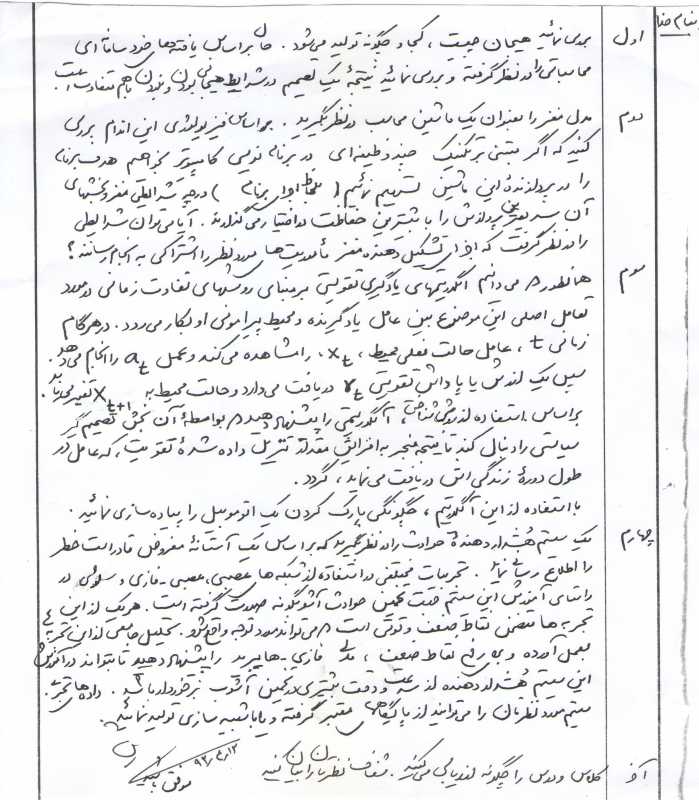 بنام خدا
اول بررسی نمائید هیجان چیست ، کجا و چگونه تولید می‌شود . حال براساس یافته‌های خود سامانه‌ای
محاسباتی را در نظر گرفته و بررسی نمائید نتیجهٔ یک تصمیم در شرایط هیجانی بودن و نبودن با هم متفاوت است .
دوم مدل مغز را بعنوان یک ماشین محاسب در نظر بگیرید . براساس فیزیولوژی این اندام بررسی
کنید که اگر مبتنی بر تکنیک چند وظیفه‌ای در برنامه نویسی کامپیوتر بخواهیم هدف برنامه
را در پردازندهٔ این ماشین تسهیم نمائیم ( بلحاظ اجرای برنامه ) در چه شرایطی مغز و بخشهای
آن سرعت پردازش را با بیشترین حفاظت در اختیار می‌گذارند . آیا می‌توان شرایطی
را در نظر گرفت که اجزای تشکیل دهنده مغز مأموریت‌های مورد نظر را اشتراکی به انجام رسانند ؟
سوم همانطور که می‌دانیم الگوریتمهای یادگیری تقویتی بر مبنای روشهای تفاوت زمانی در مورد
تعامل اصلی این موضوع بین عامل یادگیرنده و محیط پیرامونی او بکار می‌رود . در هر گام
زمانی t ، عامل حالت فعلی محیط ، xt ، را مشاهده می‌کند و عمل at را انجام می‌دهد .
سپس یک ارزش یا پاداش تقویتی rt دریافت می‌دارد و حالت محیط به xt+1 تغییر می‌یابد .
براساس استفاده از ، الگوریتمی را پیشنهاد دهید که بواسطهٔ آن بخش تصمیم گیر
سیاستی را دنبال کند تا نتیجه منجر به افزایش مقدار تنزیل داده شدهٔ تقویت ، که عامل در
طول دورهٔ زندگی اش دریافت می‌نماید ، گردد .
با استفاده از این الگوریتم ، چگونگی پارک کردن یک اتوموبیل را پیاده سازی نمائید .
چهارم یک سیستم هشدار دهندهٔ حوادث را در نظر بگیرید که براساس یک آستانهٔ مفروض قادر است خطر
را اطلاع رسانی نماید . تجربیات مختلفی در استفاده از شبکه های عصبی ، عصبی - فازی و سلولی در
راستای آموزش این سیستم جهت تخمین حوادث آشوبگونه صورت گرفته است . هریک از این
تجربه ها متضمن نقاط ضعف و قوتی است که می‌تواند مورد توجه واقع شود . تحلیل جامعی از این تجربه
بعمل آورده و برای رفع نقاط ضعف ، مدلی فازی - را پیشنهاد دهید تا بتواند در آموزش
این سیستم هشدار دهنده از سرعت و دقت بیشتری در تخمین آشوب برخوردار باشد . داده های تجربه
سیستم مورد نظرتان را می‌توانید از پایگاهی معتبر گرفته و یا با شبیه سازی تولید نمائید .
آخر کلاس و درس را چگونه ارزیابی می‌کنید . شفاف نظرتان را بیان کنید
موفق باشید